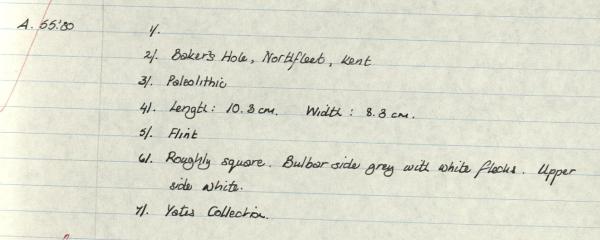 A. 55:80
1/.
2/. Baker's Hole, Northfleet, Kent
3/. Paleolithic
4/. Length: 10.3 cm. Width: 8.3 cm.
5/. Flint
6/. Roughly square. Bulbar side grey with white flecks. Upper
side white.
7/. Yates Collection.